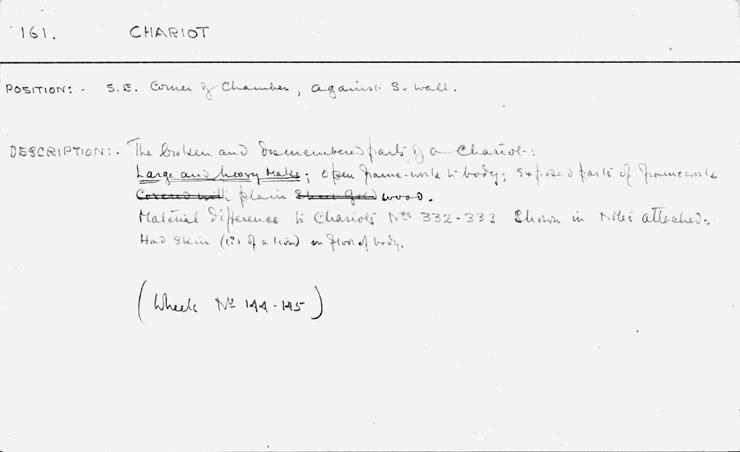 161. CHARIOT
POSITION:- S.E. Corner of Chamber, against S. wall.
DESCRIPTION:- The broken and dismembered parts of a Chariot:
Large and heavy Make; open frame-work to body; exposed parts of framework
Covered with plain Sheet gold wood.
Material difference to Chariots Nos 332-333 Shown in Notes attached.
Had Skin (?) of a lion) on floor of body.
(Wheels Nos 144-145)